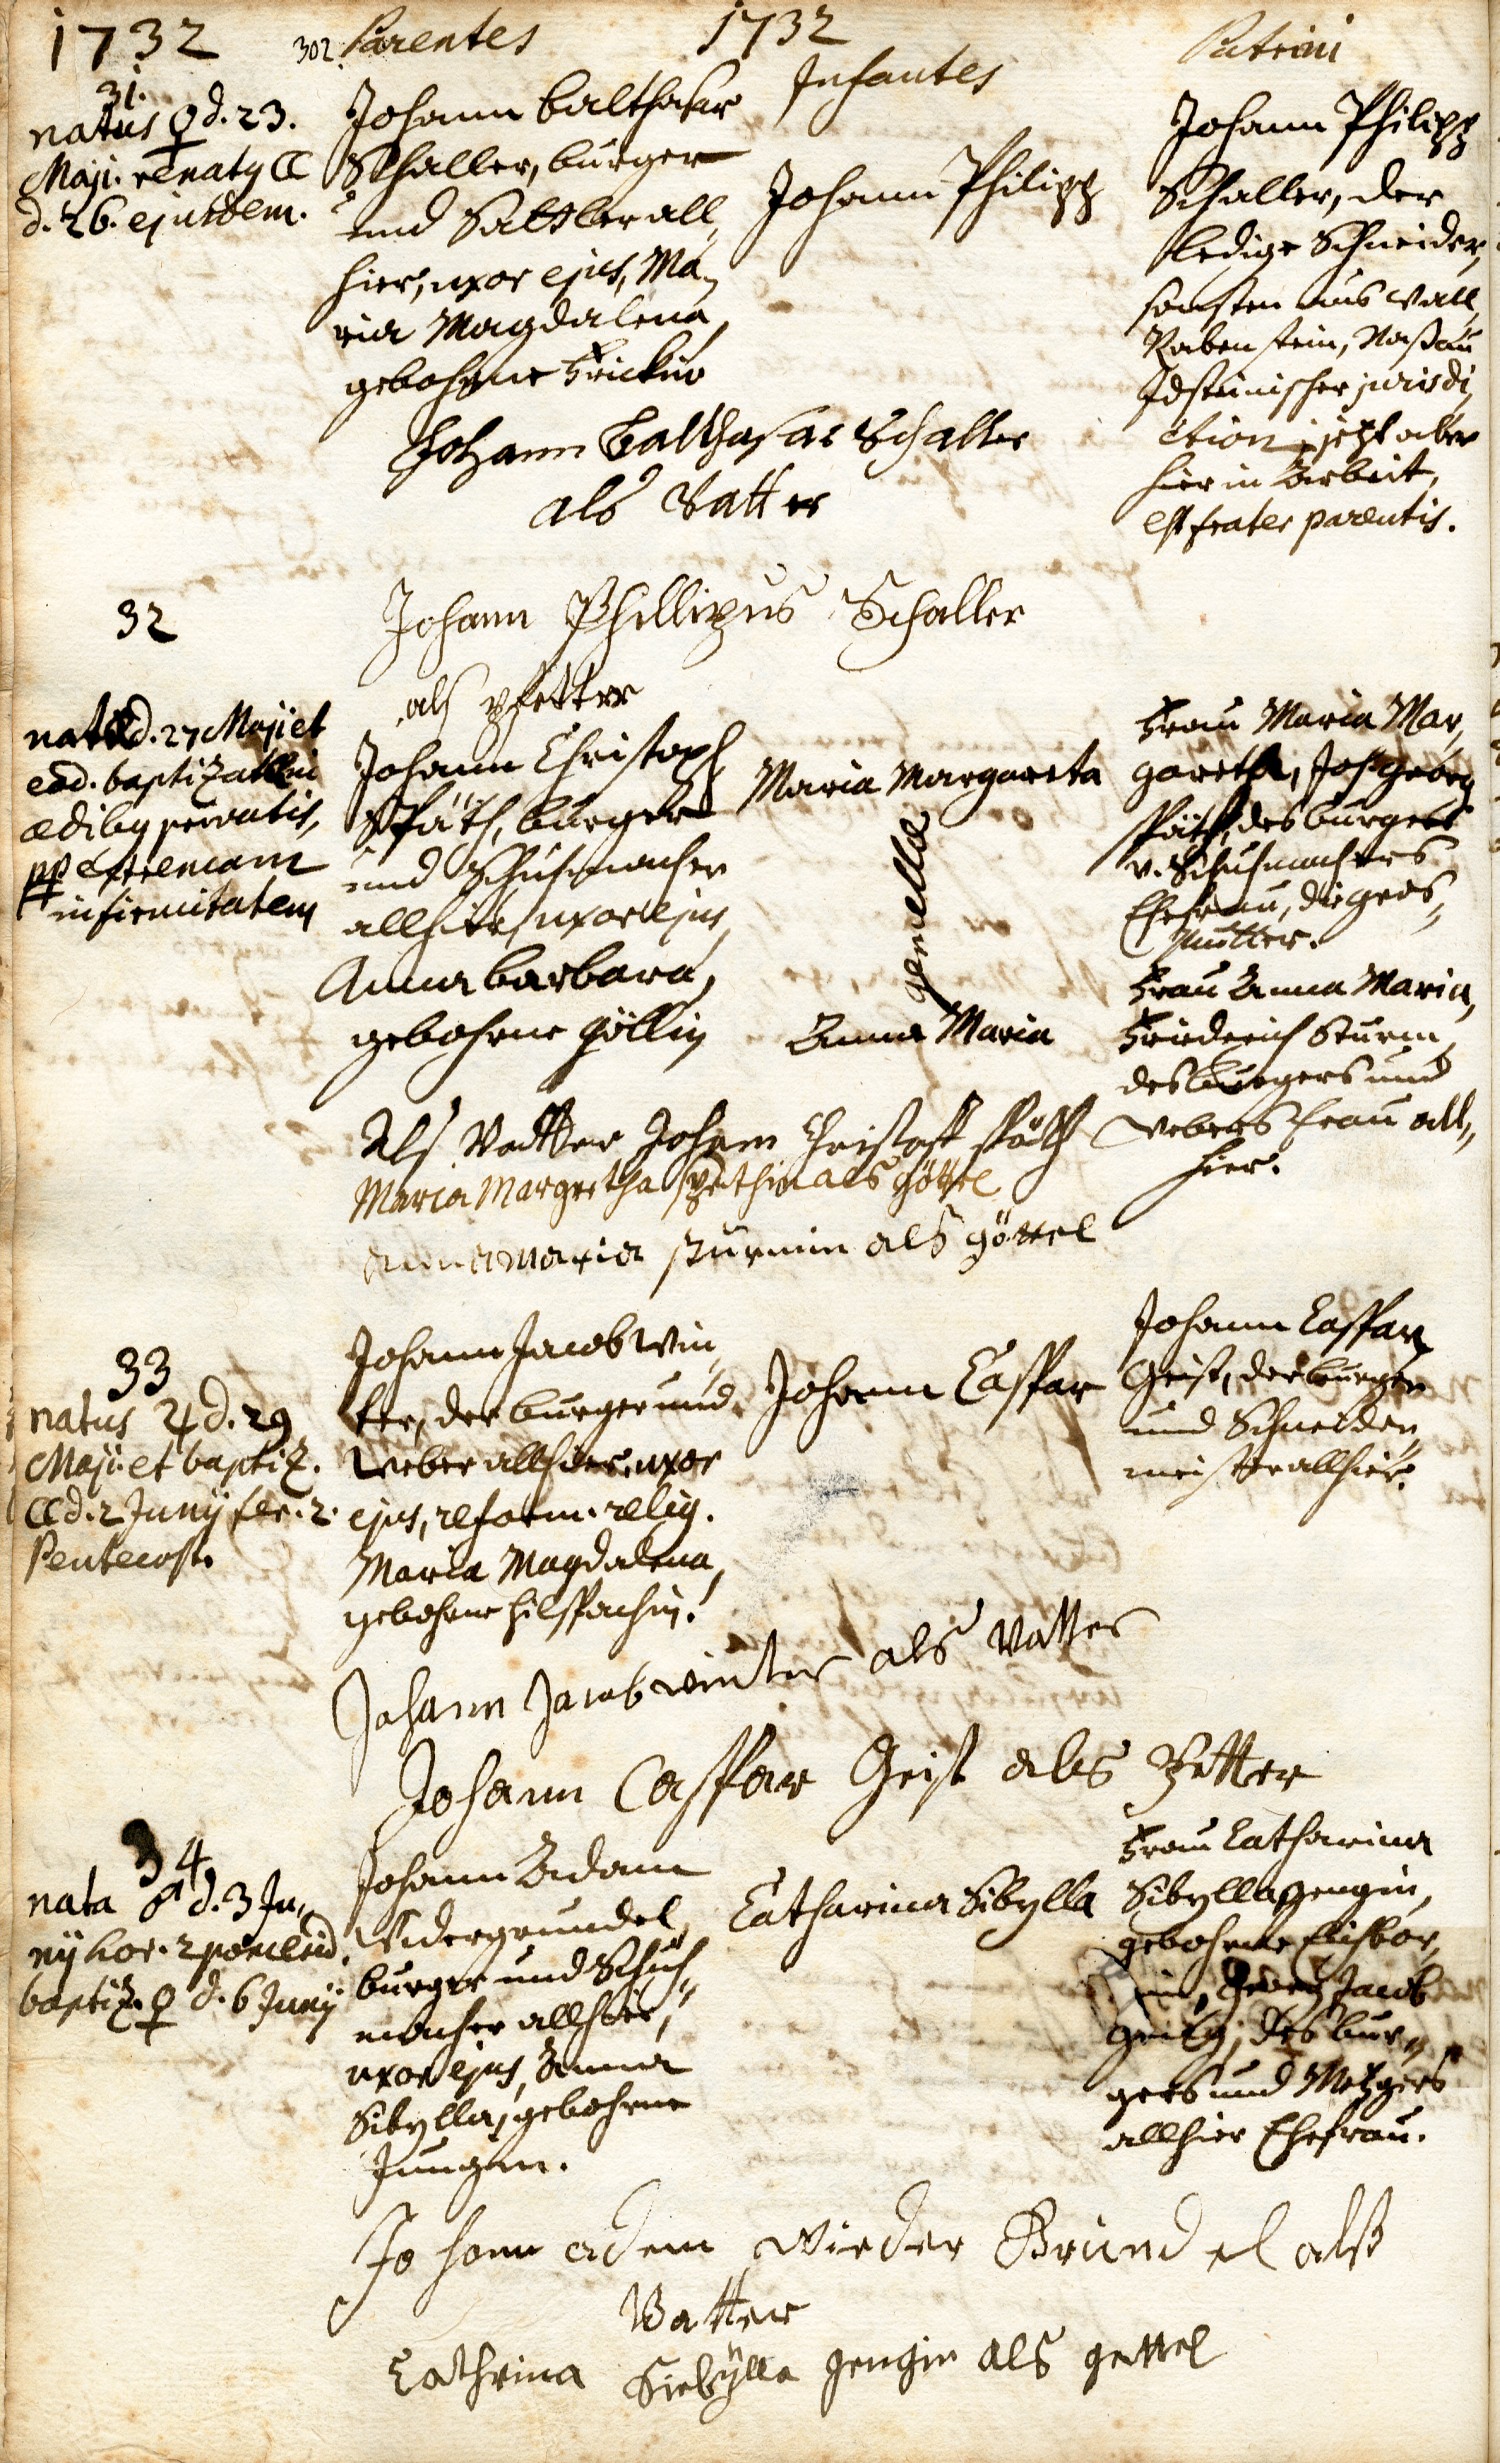 1732
302. Parentes
1732
Infantes
Patrini
31.
natus ♀ d. 23.
Maji. renatus
d. 26. ejusdem.
Johann Balthasar
Schaller, burger
und Sattler all,
hier, uxor ejus, Ma,
ria Magdalena,
gebohrne
Johann Philipp
Johann Philipp
Schaller, der
ledige Schneider,
sonsten aus Wall,
Rabenstein, Naßau
Idsteinischer jurisdi,
ction, jetzt aber
hier in Arbeit,
est frater parentis.
Johann Balthasar Schaller
als Vatter
Johann Phillipus Schaller
als pfetter
32
d. 27 Maji et
eod. baptizatae in
aedibus privatis,
pp extremam
infirmitatem
Johann Christoph
Späth, burger
und Schuhmacher
allhier, uxor ejus,
Anna barbara,
gebohrne Göllin
Maria Margareta
gemellae
Anna Maria
Frau Maria Mar,
garetha, Joh. Georg
Späth, des burgers
v. Schuhmachers
Ehefrau, die gros,
Mutter.
Frau Anna Maria,
Friederich Sturm,
des burgers und
Webers frau all,
hier.
Als Vatter Johann Christoff Späth
Maria Margretha Spethin als göttel
anna maria sturmin als göttel
33
natus ♃ d. 29
Maji. et baptiz.
d. 2 Junij fer. 2.
Pentecost.
Johann Jacob Win,
ter, der burger und
Weber allhier, uxor
ejus, reform. relig.
Maria Magdalena,
gebohrne Hilspachin.
Johann Caspar
Johann Caspar
Geist, der burger
und Schneider,
meister allhier.
Johann Jacob winter als Vatter
Johann Caspar Geist als Petter
34
nata ♂ d. 3 Ju,
nij hor. 2 pomerid.
baptiz. ♀ d. 6 Junij
Johann Adam
Widergrundel,
burger und Schuh,
macher allhier,
uxor ejus, Anna
Sibylla, gebohrne
Jungin.
Catharina Sibylla
Frau Catharina
Sibylla Gengin,
gebohrne
Georg Jacob
des bur,
gers und Metzgers
allhier Ehefrau.
Johann adem wieder Grundel alß
Vatter
Cathrina Siebÿlla gengin als gettel